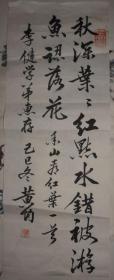 秋深葉々紅點水錯被游
魚認落花 香山看紅葉一首
李健学弟惠存 己巳冬 黄